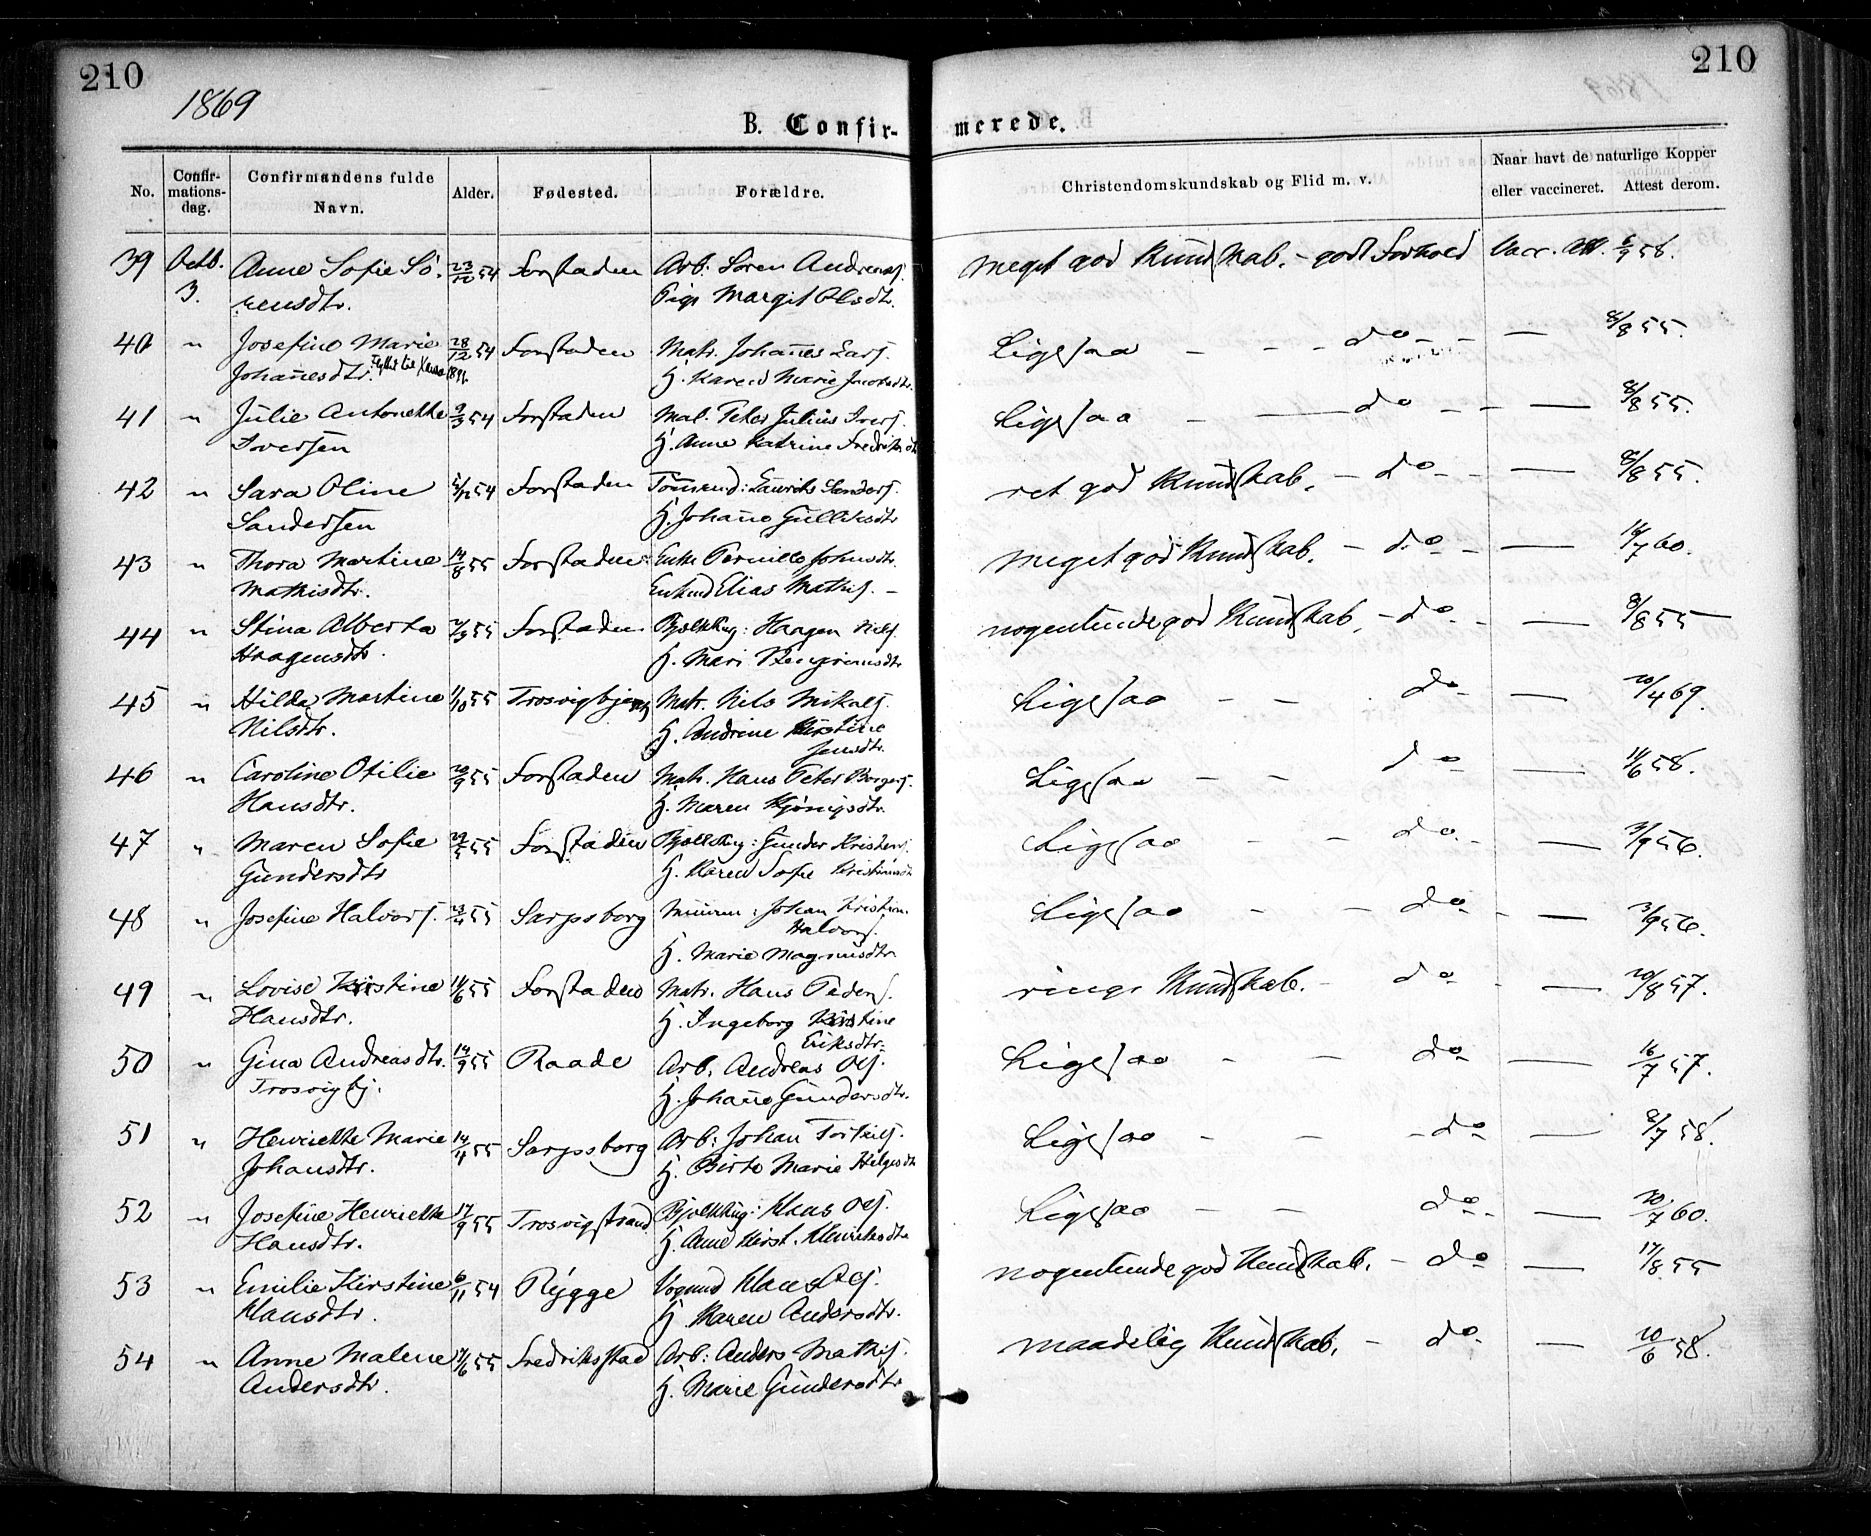 210
210
1869
B. Confir-
merede.
No.
Confir-
mations-
dag.
Confirmandens fulde
Navn.
Alder.
Fødested.
Forældre.
Christendomskundskab og Flid m. v.
Naar havt de naturlige Kopper
eller vaccineret. Attest derom.
39 Octb. Anne Sofie Sö- 23/12 54 Forstaden Arb: Soren Andreasf. meget god Kundskab. - godt Forhold Vacc. Att. 6/9 58.
3. rensdtr. Pige Margit Olsdtr.
40 " Josefine Marie 28/12 54 Forstaden Matr. Johañes Larsf. Ligesaa - - - do - - 8/8 55.
Johañesdtr. H. Karen Marie Jacobsdtr.
41 " Julie Antonette 9/3 54 Forstaden Mat. Peter Julius Iversf. Ligesaa - do - - 8/8 55.
Iversen H. Anne Katrine Fredriksdtr
42 " Sara Oline 5/12 54 Forstaden Tömmend: Laurits Sandersf. ret god Kundskab. - do - - 8/8 55.
Sandersen H. Johañe Gulliksdtr
43 " Thora Martine 14/8 55 Forstaden Enke Pernille Johnsdtr. meget god Kundskab. - do - - 14/7 60.
Mathisdtr. Elias Mathisf. -
44 " Stina Alberta 55 Forstaden Haagen Nilsf. nogenlunde god Kundskab. - do - - 8/8 55
Haagensdtr. H. Mari
45 " Hilda Martine 1/10 55 Matr. Nils Mikalsf. Ligesaa - - do - - 20/4 69.
Nilsdtr. H. Andrine Kirstine
Jensdtr.
46 " Caroline Otilie 20/9 55 Forstaden Matr. Hans Peter Borgersf. Ligesaa - - do - - 11/6 58.
Hansdtr. H. Maren
47 " Maren Sofie 55 Forstaden Gunder Kristensf. Ligesaa - - do - - 3/9 56.
Gundersdtr H. Karen Sofie
48 " Josefine Halvorsf. 55 Sarpsborg Johan Kristian Ligesaa - - do - - 3/9 56.
Halvorsf.
H. Marie Magnusdtr
49 " Lovise Kirstine 11/6 55 Forstaden Matr. Hans Pedersf. ringe Kundskab. - do - - 20/8 57.
Hansdtr. H. Ingeborg Kirstine
Eriksdtr.
50 " Gina Andreasdtr. 14/9 55 Raade Arb. Andreas Olsf. Ligesaa - - do - - 16/7 57.
Trosvigbj. H. Johañe Gundersdtr.
51 " Henriette Marie 14/4 55 Sarpsborg Arb: Johan Ligesaa - - do - - 8/7 58.
Johansdtr. H. Birte Marie Helgesdtr
52 " Josefine Henriette 17/9 55 Trosvigstrand Hans Olsf. Ligesaa - - do - - 20/7 60.
Hansdtr. H. Anne Kirst. Henriksdtr
53 " Emilie Kirstine 6/11 54 Rygge Vogmd Klaus Olsf. nogenlunde god Kundskab. - do - 17/8 55
Klausdtr. H. Maren Andersdtr.
54 " Anne Malene 55 Fredriksstad Arb: Anders Mathisf. maadelig Kundskab. - do - 20/6 58.
Andersdtr. H. Marie Gundersdtr